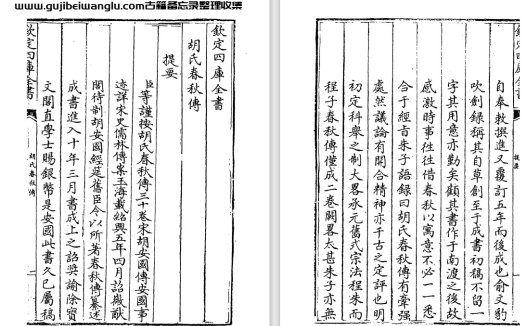 www.gujibeiwanglu.com古籍备忘录整理收集
欽定四庫全書
胡氏春秋傳
提要
臣等謹按胡氏春秋傳三十卷宋胡安國傳安國事
迹詳宋史儒林傳案玉海載紹興五年四月詔徽猷
閣待制胡安國經筵舊臣令以所著春秋傳纂述
成書進入十年三月書成上之詔奬諭除寶
文閣直學士賜銀幣是安國此書久已屬稿
欽定四庫全書
胡氏春秋傳
欽定四庫全書
提要
自奉敕撰進又覆訂五年而後成也俞文豹
吹劍錄稱其自草創至于成書初稿不留一
字其用意亦勤矣顧其書作于南渡之後故
感激時事往往借春秋以寓意不必一一悉
合于經旨朱子語錄曰胡氏春秋傳有牽強
處然議論有開合精神亦千古之定評也明
初定科舉之制大畧承元舊式宗法程朱而
程子春秋傳僅成二卷闕畧太甚朱子亦無